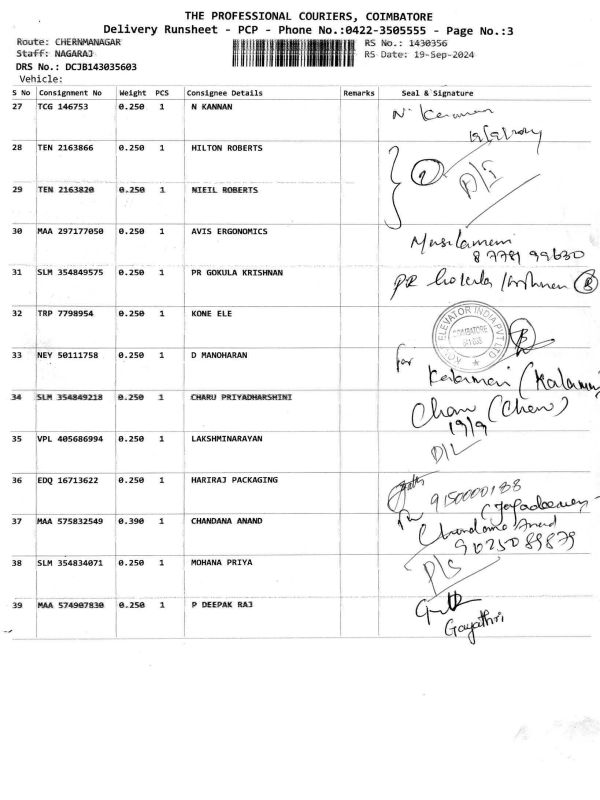 THE PROFESSIONAL COURIERS, COIMBATORE
Delivery Runsheet - PCP - Phone No.:0422-3505555 - Page No.:3
Route: CHERNMANAGAR RS No.: 1430356
Staff: NAGARAJ RS Date: 19-Sep-2024
DRS No.: DCJB143035603
Vehicle:
S No Consignment No Weight PCS Consignee Details Remarks Seal & Signature
27 TCG 146753 0.250 1 N KANNAN N. Kannan
19/9/2024
28 TEN 2163866 0.250 1 HILTON ROBERTS
29 TEN 2163820 0.250 1 NIEIL ROBERTS
30 MAA 297177050 0.250 1 AVIS ERGONOMICS Masilamani
87781 99630
31 SLM 354849575 0.250 1 PR GOKULA KRISHNAN PR Gokula Krishnan
32 TRP 7798954 0.250 1 KONE ELE ELEVATOR INDIA PVT LTD
COIMBATORE
33 NEY 50111758 0.250 1 D MANOHARAN for
34 SLM 354849218 0.250 1 CHARU PRIYADHARSHINI
19/9
35 VPL 405686994 0.250 1 LAKSHMINARAYAN D/L
36 EDQ 16713622 0.250 1 HARIRAJ PACKAGING
37 MAA 575832549 0.390 1 CHANDANA ANAND Chandana Anand
9025089879
38 SLM 354834071 0.250 1 MOHANA PRIYA
39 MAA 574907830 0.250 1 P DEEPAK RAJ
Gayathri